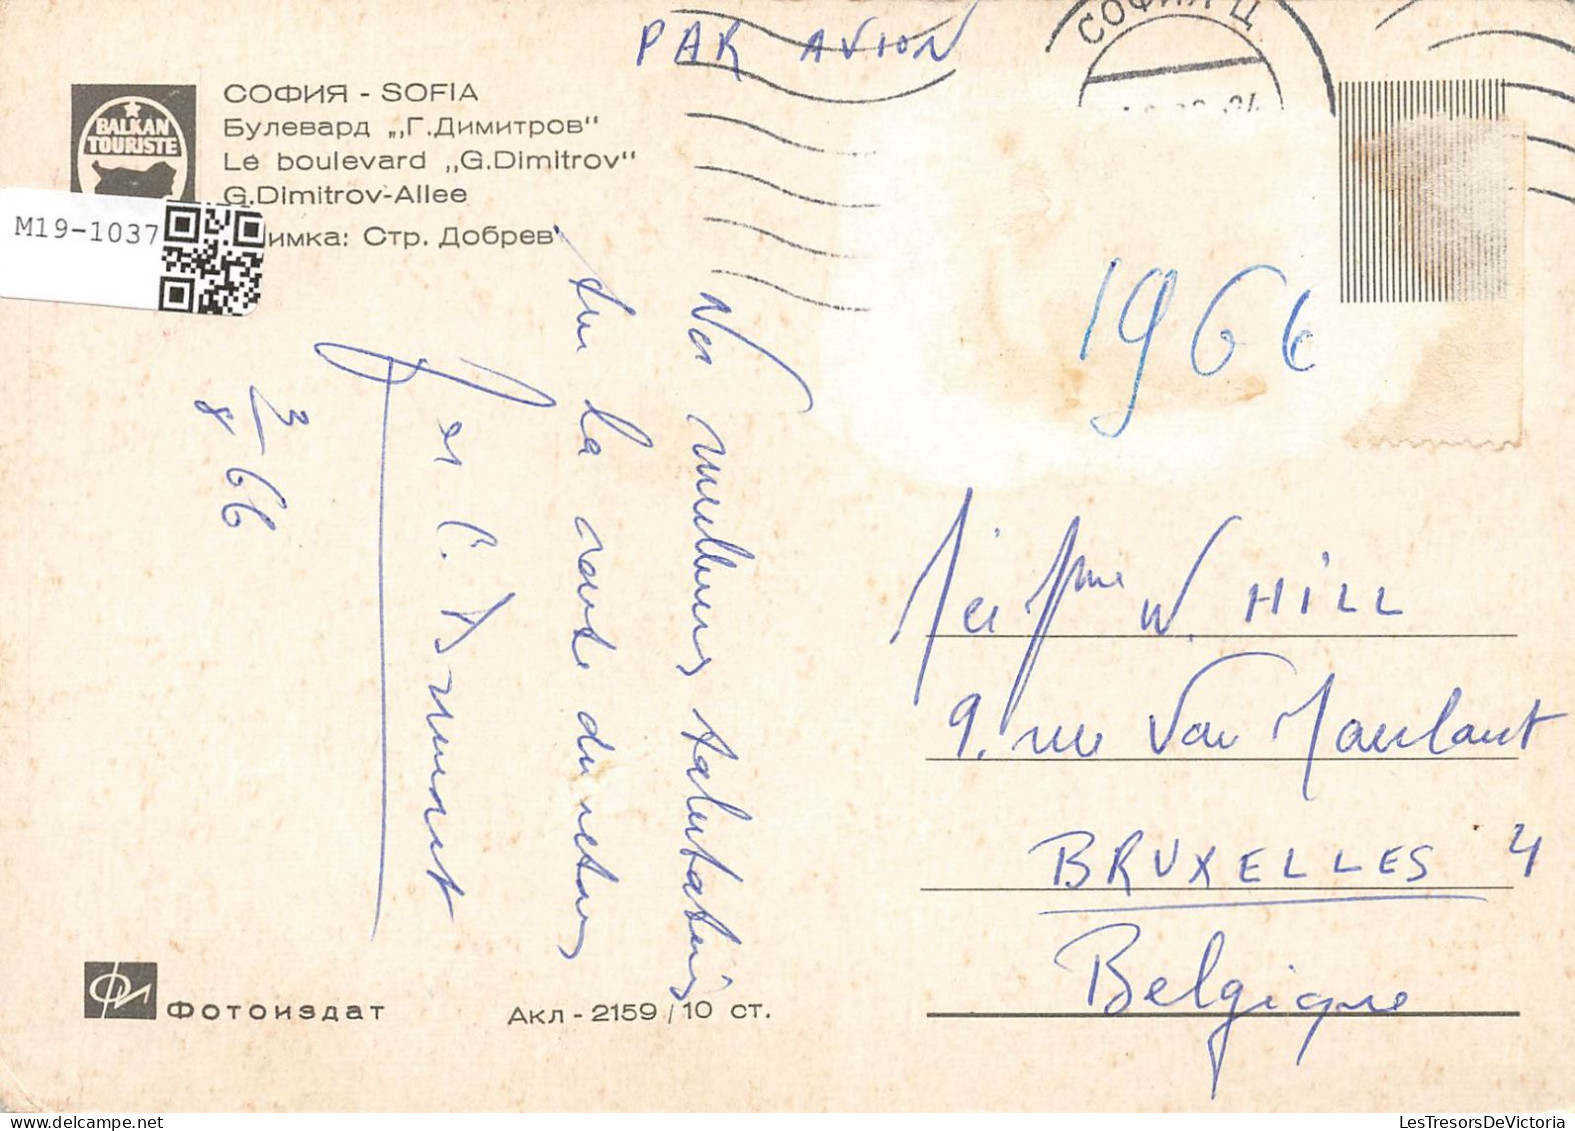 PAR AVION
СОФИЯ Ц
BALKAN
TOURISTE
СОФИЯ - SOFIA
Булевард „Г.Димитров"
Le boulevard „G.Dimitrov"
G.Dimitrov-Allee
имка: Стр. Добрев
M19-1037
1966
Nos meilleures salutations
sur la route du retour
C.
3/8 66
W. HILL
9. rue Van
BRUXELLES 4
Belgique
Фотоиздат
Акл - 2159 / 10 ст.
LesTresorsDeVictoria.com
LesTresorsDeVictoria